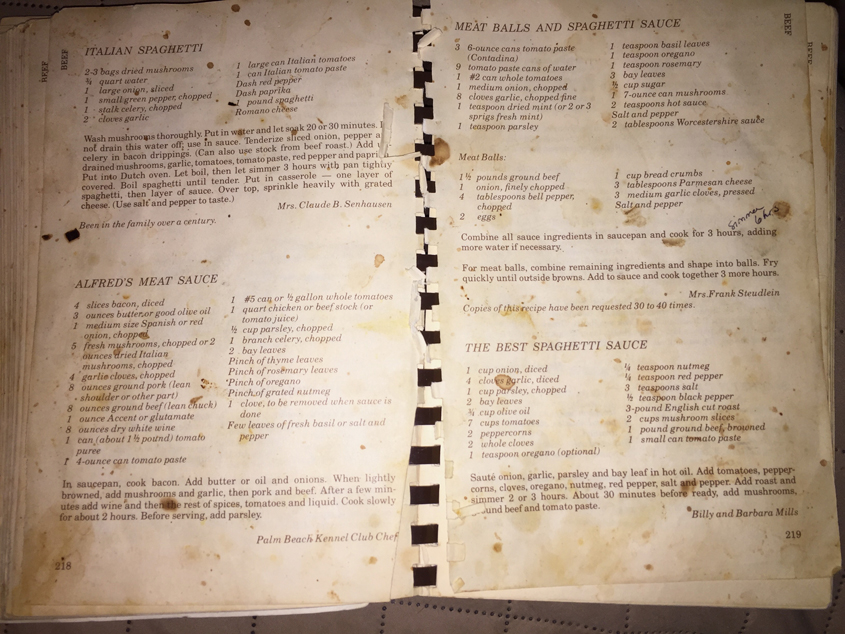 BEEF
BEEF
ITALIAN SPAGHETTI
2-3 bags dried mushrooms
¾ quart water
1 large onion, sliced
1 small green pepper, chopped
1 stalk celery, chopped
2 cloves garlic
1 large can Italian tomatoes
1 can Italian tomato paste
Dash red pepper
Dash paprika
1 pound spaghetti
Romano cheese
Wash mushrooms thoroughly. Put in water and let soak 20 or 30 minutes.
not drain this water off; use in sauce. Tenderize sliced onion, pepper
celery in bacon drippings. (Can also use stock from beef roast.) Add
drained mushrooms, garlic, tomatoes, tomato paste, red pepper and
Put into Dutch oven. Let boil, then let simmer 3 hours with pan tightly
covered. Boil spaghetti until tender. Put in casserole — one layer of
spaghetti, then layer of sauce. Over top, sprinkle heavily with grated
cheese. (Use salt and pepper to taste.)
Mrs. Claude B. Senhausen
Been in the family over a century.
ALFRED'S MEAT SAUCE
4 slices bacon, diced
3 ounces butter or good olive oil
1 medium size Spanish or red
onion, chopped
5 fresh mushrooms, chopped or 2
ounces dried Italian
mushrooms, chopped
4 garlic cloves, chopped
8 ounces ground pork (lean
shoulder or other part)
8 ounces ground beef (lean chuck)
1 ounce Accent or glutamate
8 ounces dry white wine
1 can (about 1½ pound) tomato
puree
1 4-ounce can tomato paste
1 #5 can or ½ gallon whole tomatoes
1 quart chicken or beef stock (or
tomato juice)
½ cup parsley, chopped
1 branch celery, chopped
2 bay leaves
Pinch of thyme leaves
Pinch of rosemary leaves
Pinch of oregano
Pinch of grated nutmeg
1 clove, to be removed when sauce is
done
Few leaves of fresh basil or salt and
pepper
In saucepan, cook bacon. Add butter or oil and onions. When lightly
browned, add mushrooms and garlic, then pork and beef. After a few min-
utes add wine and then the rest of spices, tomatoes and liquid. Cook slowly
for about 2 hours. Before serving, add parsley.
Palm Beach Kennel Club Chef
218
MEAT BALLS AND SPAGHETTI SAUCE
BEEF
3 6-ounce cans tomato paste
(Contadina)
9 tomato paste cans of water
1 #2 can whole tomatoes
1 medium onion, chopped
8 cloves garlic, chopped fine
1 teaspoon dried mint (or 2 or 3
sprigs fresh mint)
1 teaspoon parsley
1 teaspoon basil leaves
1 teaspoon oregano
1 teaspoon rosemary
3 bay leaves
cup sugar
1 7-ounce can mushrooms
2 teaspoons hot sauce
Salt and pepper
2 tablespoons Worcestershire sauce
Meat Balls:
1½ pounds ground beef
1 onion, finely chopped
4 tablespoons bell pepper,
chopped
2 eggs
1 cup bread crumbs
3 tablespoons Parmesan cheese
3 medium garlic cloves, pressed
Salt and pepper
Simmer
6 hrs
Combine all sauce ingredients in saucepan and cook for 3 hours, adding
more water if necessary.
For meat balls, combine remaining ingredients and shape into balls. Fry
quickly until outside browns. Add to sauce and cook together 3 more hours.
Mrs. Frank Steudlein
Copies of this recipe have been requested 30 to 40 times.
THE BEST SPAGHETTI SAUCE
1 cup onion, diced
4 cloves garlic, diced
1 cup parsley, chopped
2 bay leaves
¾ cup olive oil
7 cups tomatoes
2 peppercorns
2 whole cloves
1 teaspoon oregano (optional)
¼ teaspoon nutmeg
¼ teaspoon red pepper
3 teaspoons salt
½ teaspoon black pepper
3-pound English cut roast
2 cups mushroom slices
1 pound ground beef, browned
1 small can tomato paste
Sauté onion, garlic, parsley and bay leaf in hot oil. Add tomatoes, pepper-
corns, cloves, oregano, nutmeg, red pepper, salt and pepper. Add roast and
simmer 2 or 3 hours. About 30 minutes before ready, add mushrooms,
beef and tomato paste.
Billy and Barbara Mills
219